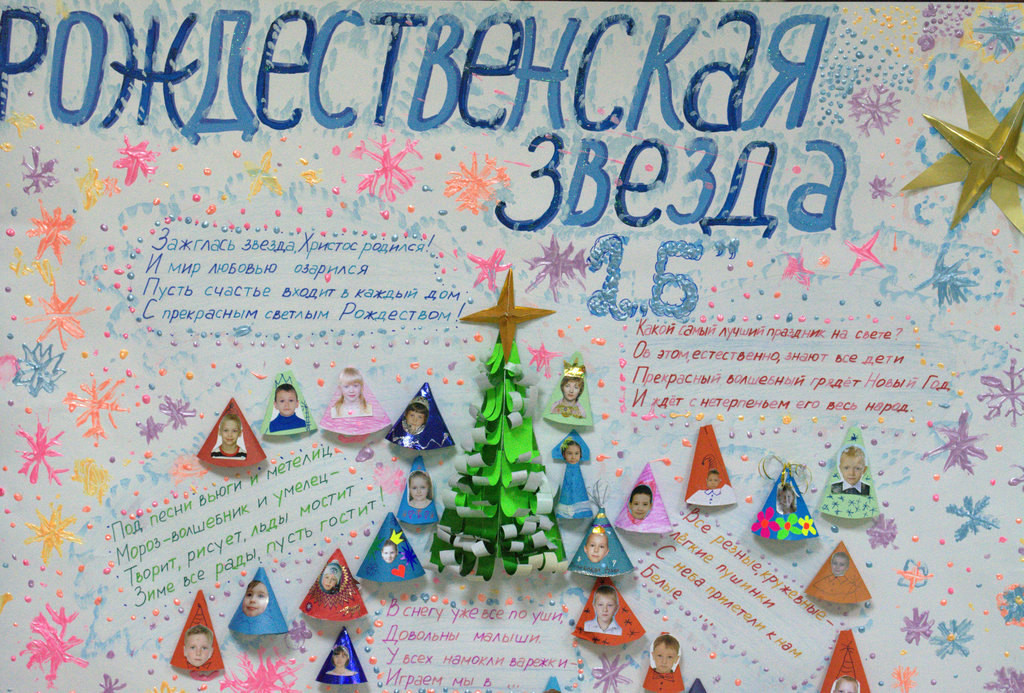 РОЖДЕСТВЕНСКАЯ
ЗВЕЗДА
1„Б"
Зажглась звезда, Христос родился!
И мир любовью озарился
Пусть счастье входит в каждый дом
С прекрасным светлым Рождеством!
Какой самый лучший праздник на свете?
Об этом, естественно, знают все дети
Прекрасный волшебный грядёт Новый Год,
И ждёт с нетерпеньем его весь народ.
Под песни вьюги и метелиц
Мороз-волшебник и умелец-
Творит, рисует, льды мостит
Зиме все рады, пусть гостит!
Все резные, кружевные-
лёгкие пушинки
С неба прилетели к нам
Белые ......
В снегу уже все по уши,
Довольны малыши.
У всех намокли варежки-
Играем мы в ...